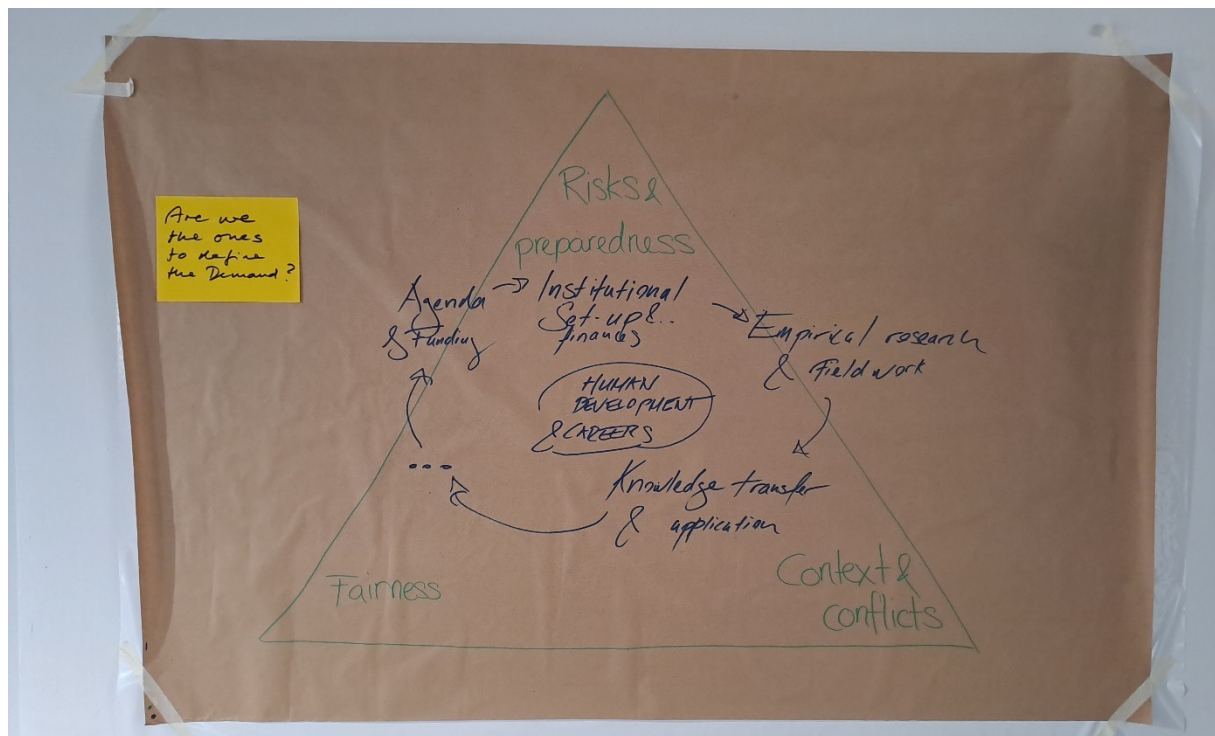 Are we
the ones
to define
the Demand?
Risks &
preparedness
Agenda
& Funding
Institutional
Set-up &..
finances
Empirical research
& Fieldwork
HUMAN
DEVELOPMENT
& CAREERS
Knowledge transfer
& application
...
Fairness
Context &
conflicts